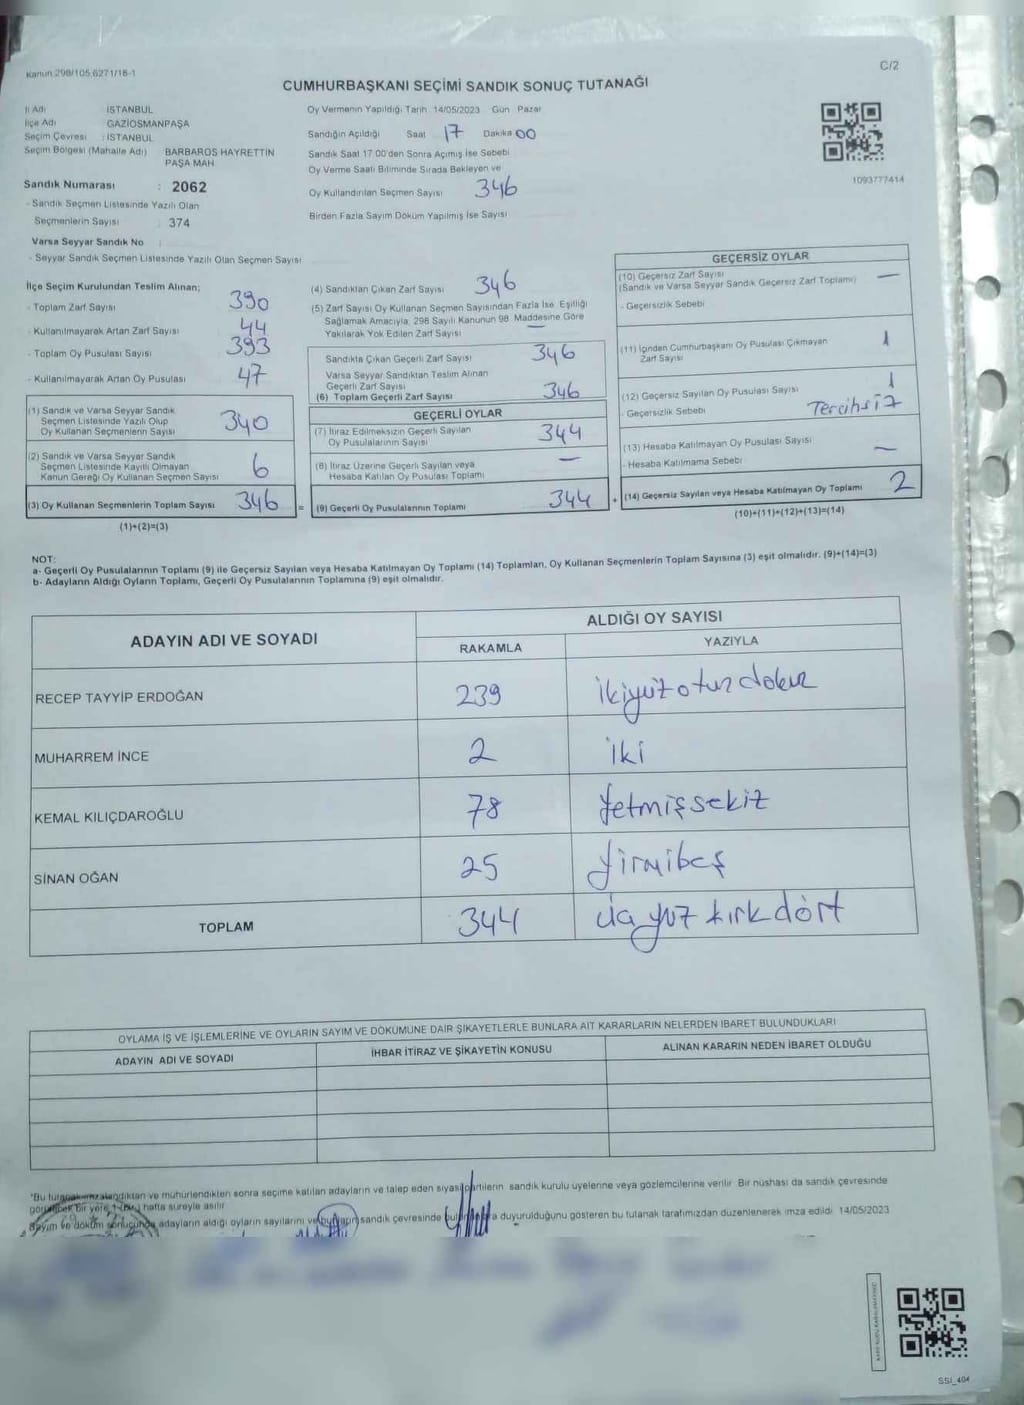 Kanun 298/105,6271/18-1
C/2
CUMHURBAŞKANI SEÇİMİ SANDIK SONUÇ TUTANAĞI
İl Adı : İSTANBUL
İlçe Adı : GAZİOSMANPAŞA
Seçim Çevresi : İSTANBUL
Seçim Bölgesi (Mahalle Adı) BARBAROS HAYRETTİN
PAŞA MAH
Sandık Numarası : 2062
- Sandık Seçmen Listesinde Yazılı Olan
Seçmenlerin Sayısı : 374
Varsa Seyyar Sandık No :
- Seyyar Sandık Seçmen Listesinde Yazılı Olan Seçmen Sayısı
Oy Vermenin Yapıldığı Tarih 14/05/2023 Gün Pazar
Sandığın Açıldığı Saat 17 Dakika 00
Sandık Saat 17.00'den Sonra Açılmış İse Sebebi
Oy Verme Saati Bitiminde Sırada Bekleyen ve
Oy Kullandırılan Seçmen Sayısı 346
Birden Fazla Sayım Döküm Yapılmış İse Sayısı
1093777414
İlçe Seçim Kurulundan Teslim Alınan;
- Toplam Zarf Sayısı 390
- Kullanılmayarak Artan Zarf Sayısı 44
- Toplam Oy Pusulası Sayısı 393
- Kullanılmayarak Artan Oy Pusulası 47
(1) Sandık ve Varsa Seyyar Sandık
Seçmen Listesinde Yazılı Olup
Oy Kullanan Seçmenlerin Sayısı 340
(2) Sandık ve Varsa Seyyar Sandık
Seçmen Listesinde Kayıtlı Olmayan
Kanun Gereği Oy Kullanan Seçmen Sayısı 6
(3) Oy Kullanan Seçmenlerin Toplam Sayısı 346
(1)+(2)=(3)
=
(4) Sandıktan Çıkan Zarf Sayısı 346
(5) Zarf Sayısı Oy Kullanan Seçmen Sayısından Fazla İse, Eşitliği
Sağlamak Amacıyla, 298 Sayılı Kanunun 98. Maddesine Göre
Yakılarak Yok Edilen Zarf Sayısı —
Sandıkta Çıkan Geçerli Zarf Sayısı 346
Varsa Seyyar Sandıktan Teslim Alınan
Geçerli Zarf Sayısı
(6) Toplam Geçerli Zarf Sayısı 346
GEÇERLİ OYLAR
(7) İtiraz Edilmeksizin Geçerli Sayılan
Oy Pusulalarının Sayısı 344
(8) İtiraz Üzerine Geçerli Sayılan veya
Hesaba Katılan Oy Pusulası Toplamı —
(9) Geçerli Oy Pusulalarının Toplamı 344
+
GEÇERSİZ OYLAR
(10) Geçersiz Zarf Sayısı —
(Sandık ve Varsa Seyyar Sandık Geçersiz Zarf Toplamı)
- Geçersizlik Sebebi
(11) İçinden Cumhurbaşkanı Oy Pusulası Çıkmayan
Zarf Sayısı 1
(12) Geçersiz Sayılan Oy Pusulası Sayısı 1
- Geçersizlik Sebebi Tercihsiz
(13) Hesaba Katılmayan Oy Pusulası Sayısı —
- Hesaba Katılmama Sebebi
(14) Geçersiz Sayılan veya Hesaba Katılmayan Oy Toplamı 2
(10)+(11)+(12)+(13)=(14)
NOT:
a- Geçerli Oy Pusulalarının Toplamı (9) ile Geçersiz Sayılan veya Hesaba Katılmayan Oy Toplamı (14) Toplamları, Oy Kullanan Seçmenlerin Toplam Sayısına (3) eşit olmalıdır. (9)+(14)=(3)
b- Adayların Aldığı Oyların Toplamı, Geçerli Oy Pusulalarının Toplamına (9) eşit olmalıdır.
ADAYIN ADI VE SOYADI
ALDIĞI OY SAYISI
RAKAMLA YAZIYLA
RECEP TAYYİP ERDOĞAN 239 ikiyüz otuz dokuz
MUHARREM İNCE 2 iki
KEMAL KILIÇDAROĞLU 78 Yetmişsekiz
SİNAN OĞAN 25 Yirmibeş
TOPLAM 344 üç yüz kırk dört
OYLAMA İŞ VE İŞLEMLERİNE VE OYLARIN SAYIM VE DÖKÜMÜNE DAİR ŞİKAYETLERLE BUNLARA AİT KARARLARIN NELERDEN İBARET BULUNDUKLARI
ADAYIN ADI VE SOYADI İHBAR İTİRAZ VE ŞİKAYETİN KONUSU ALINAN KARARIN NEDEN İBARET OLDUĞU
*Bu tutanak imzalandıktan ve mühürlendikten sonra seçime katılan adayların ve talep eden siyasi partilerin sandık kurulu üyelerine veya gözlemcilerine verilir. Bir nüshası da sandık çevresinde
bir yere 1 (bir) hafta süreyle asılır
Sayım ve döküm sonucunda adayların aldığı oyların sayılarını ve sandık çevresinde duyurulduğunu gösteren bu tutanak tarafımızdan düzenlenerek imza edildi 14/05/2023
SSI_404